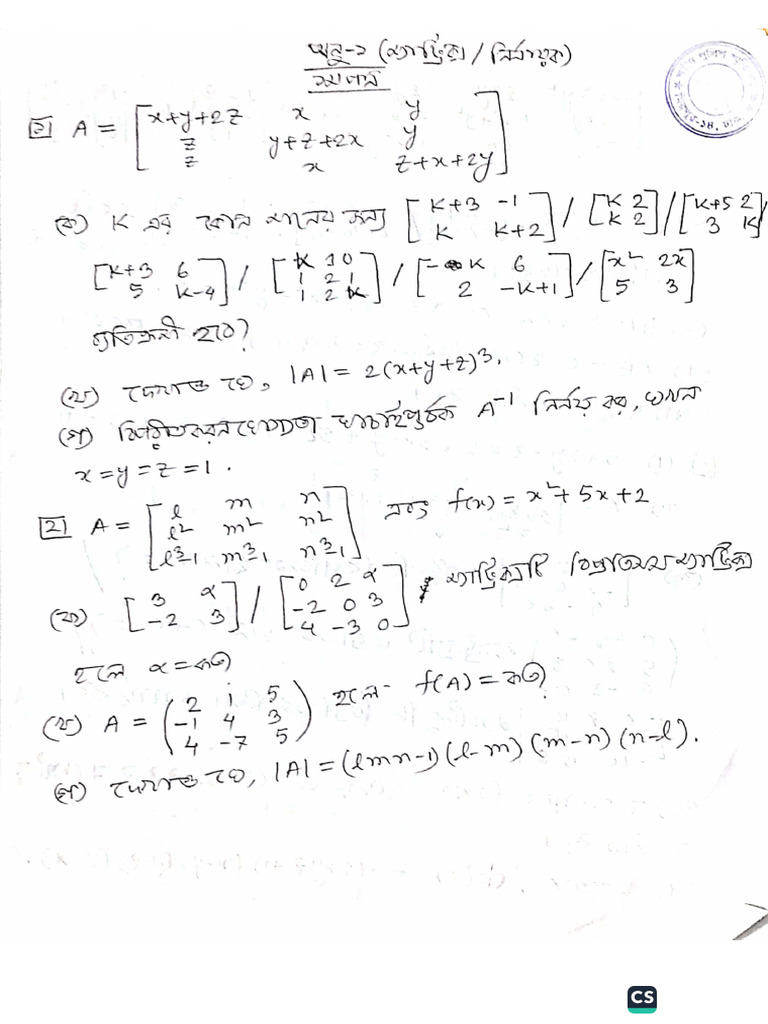 অনু-১ (ম্যাট্রিক্স / নির্নায়ক)
১ A = [x+y+2z x y
z y+z+2x y
z x z+x+2y]
(ক) K এর কোন মানের জন্য [K+3 -1 / K K+2] / [K 2 / K 2] / [K+5 2 / 3 K]
[K+3 6 / 5 K-4] / [K 1 0 / 1 2 1 / 1 2 K] / [-K 6 / 2 -K+1] / [x² 2x / 5 3]
ব্যতিক্রমী হবে?
(খ) দেখাও যে, |A| = 2(x+y+z)³.
(গ) যাচাইপূর্বক A⁻¹ নির্নয় কর, যখন
x = y = z = 1.
2 A = [l m n
l² m² n²
l³-1 m³-1 n³-1] এবং f(x) = x² + 5x + 2
(ক) [3 α / -2 3] / [0 2 α / -2 0 3 / 4 -3 0] ম্যাট্রিক্সটি বিপ্রতিসম ম্যাট্রিক্স
হলে α = কত
(খ) A = (2 1 5 / -1 4 3 / 4 -7 5) হলে f(A) = কত
(গ) দেখাও যে, |A| = (lmn-1)(l-m)(m-n)(n-l).
CS